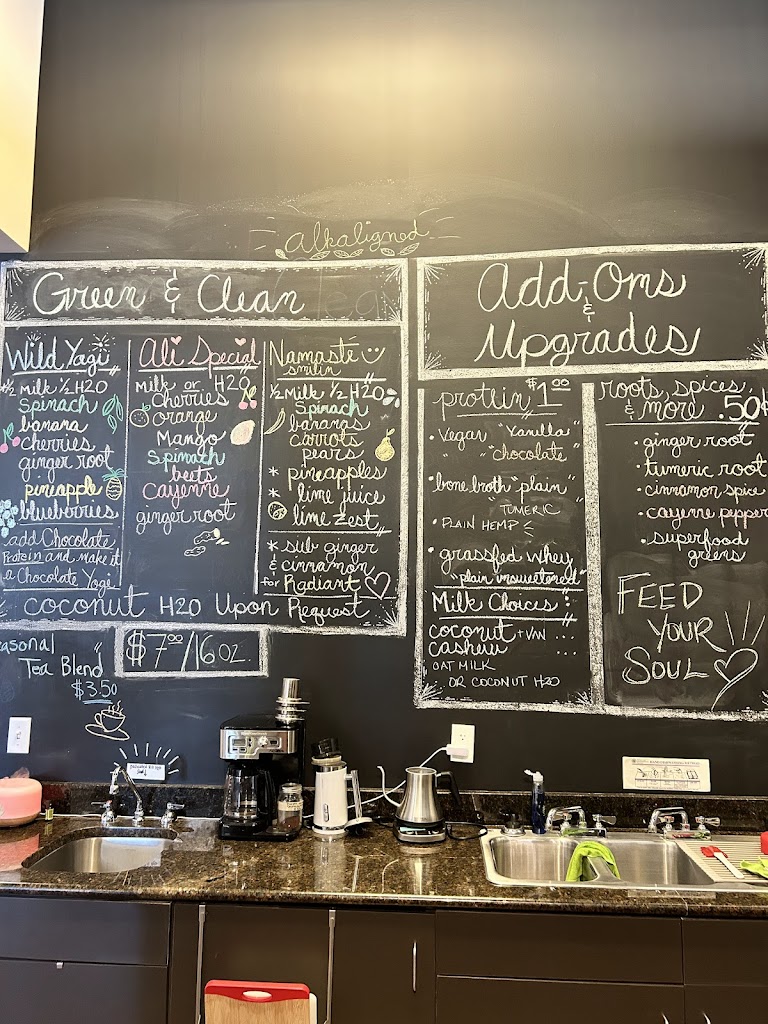 alkaligned
Green & Clean
Wild Yogi
½ milk ½ H2O
Spinach
banana
cherries
ginger root
pineapple
blueberries
add Chocolate
Protein and make it
a Chocolate Yoge
Ali Special
milk or H2O
cherries
orange
Mango
Spinach
beets
Cayenne
ginger root
Namaste
smilin
½ Milk ½ H2O
Spinach
bananas
carrots
pears
* pineapples
* lime juice
* lime zest
* sub ginger
& cinnamon
for Radiant
coconut H2O Upon Request
$7.00/16oz.
easonal
Tea Blend
$3.50
Add-Oms
&
Upgrades
protein $1.00
• Vegan "Vanilla"
" "chocolate"
• bone broth "plain"
TUMERIC
• PLAIN HEMP
• grassfed whey
"plain unsweetened"
Milk Choices:
coconut + VAN ...
cashew ...
OAT MILK
OR COCONUT H2O
roots, spices,
& more .50¢
• ginger root
• tumeric root
• cinnamon spice
• cayenne pepper
• superfood
greens
FEED
YOUR
SOUL